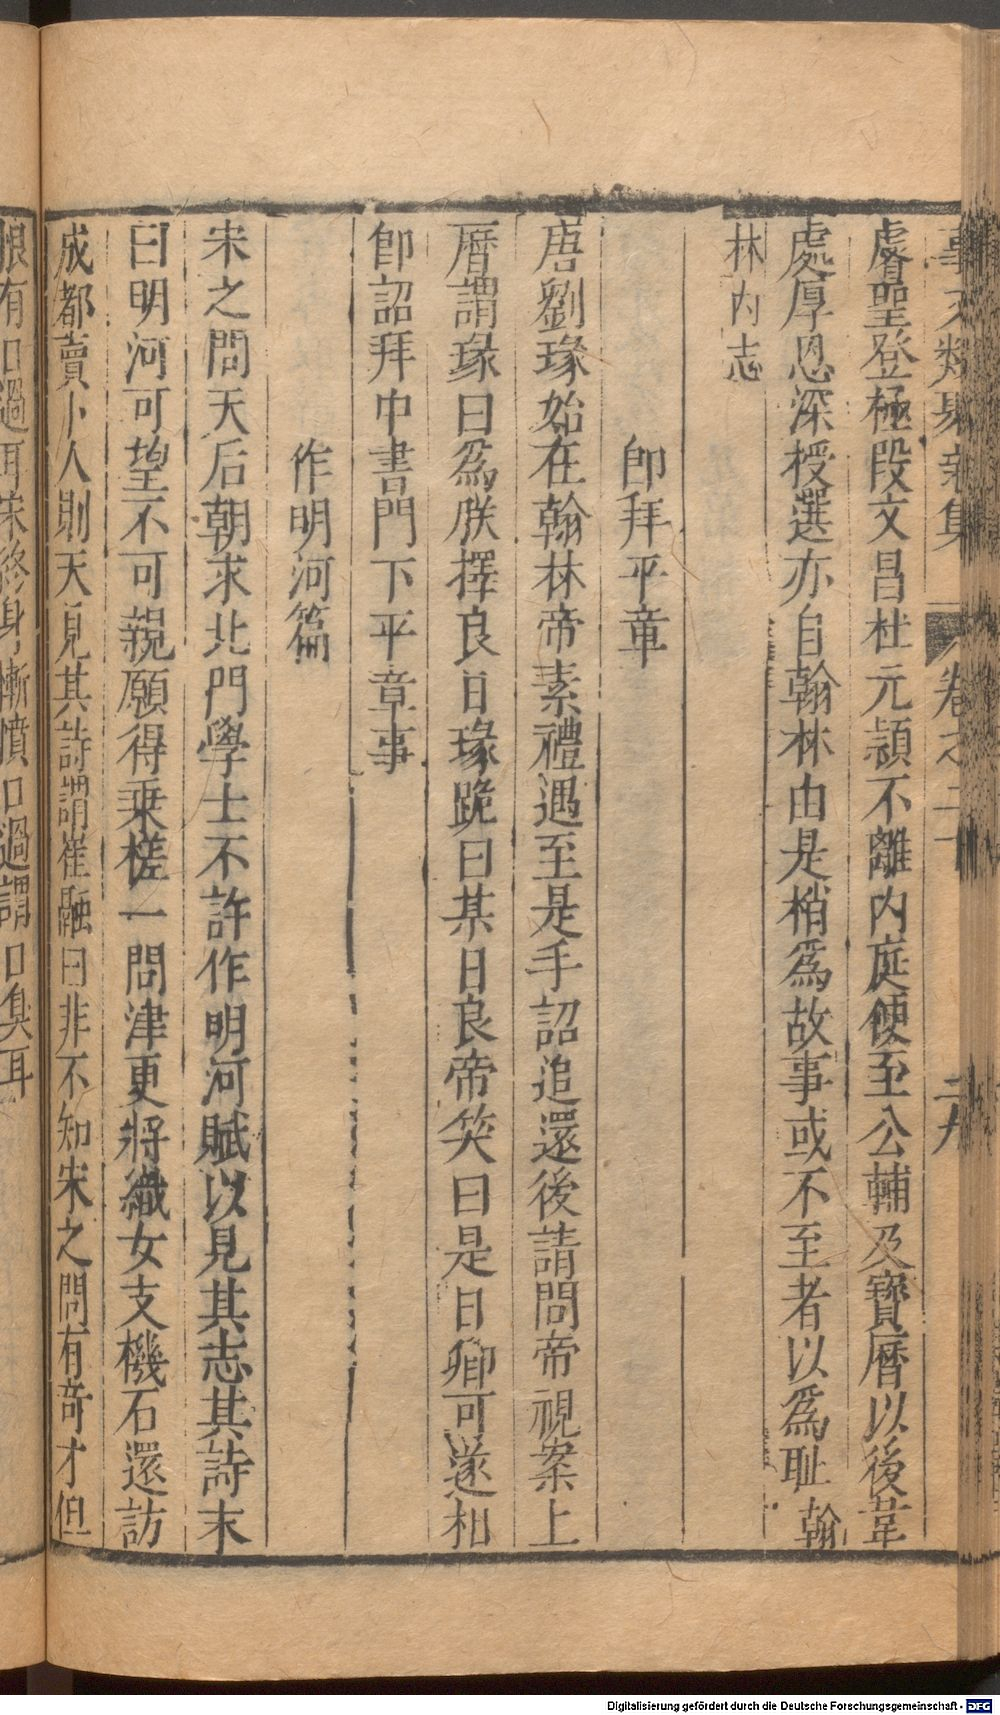 事文類聚新集 卷之二十 二九
睿聖登極段文昌杜元頴不離内庭便至公輔及寶曆以後韋
處厚恩深授選亦自翰林由是梢爲故事或不至者以爲耻翰
林内志
即拜平章
唐劉瑑始在翰林帝素禮遇至是手詔追還後請問帝視案上
曆謂瑑曰爲朕擇良日瑑跪曰某日良帝笑曰是日卿可遂相
即詔拜中書門下平章事
作明河篇
宋之問天后朝求北門學士不許作明河賦以見其志其詩末
曰明河可望不可親願得乗槎一問津更將織女支機石還訪
成都賣卜人則天見其詩謂崔融曰非不知宋之問有奇才但
恨有口過耳宋終身慚憤口過謂口臭耳
Digitalisierung gefördert durch die Deutsche Forschungsgemeinschaft - DFG